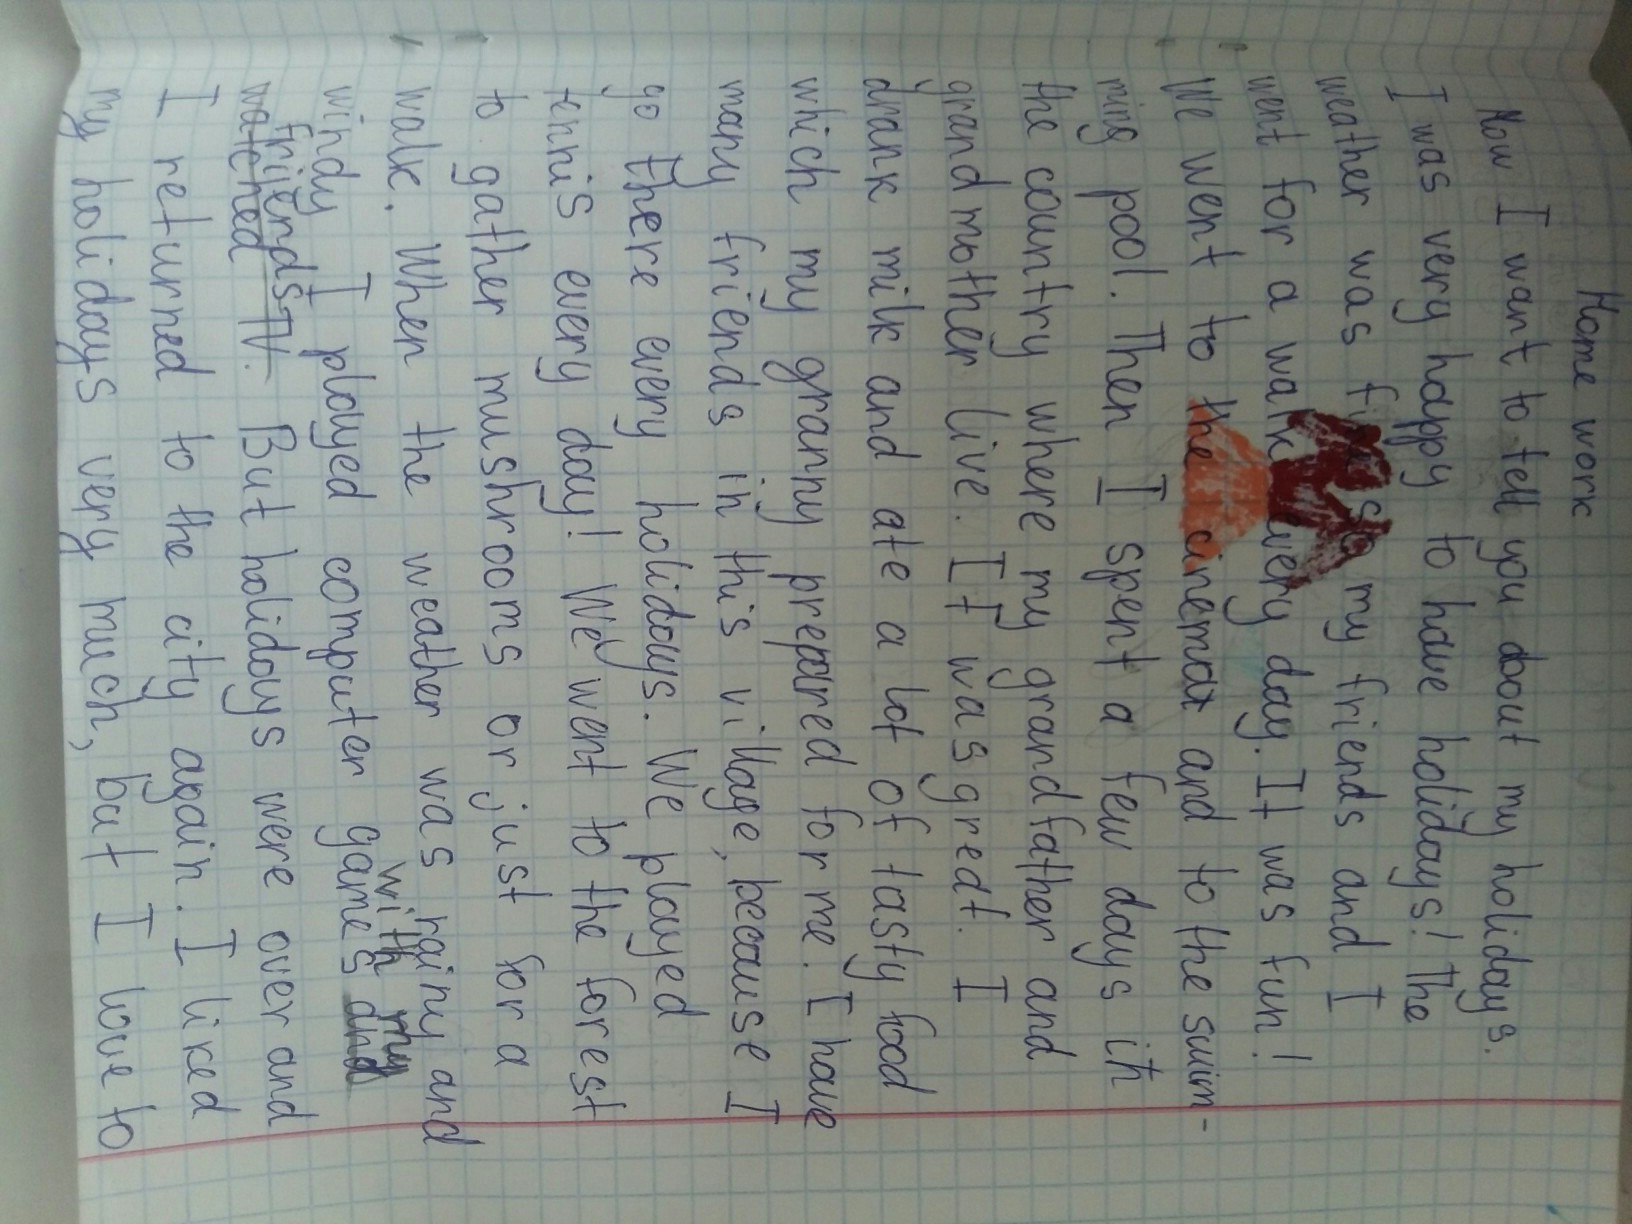 Home work
Now I want to tell you about my holidays.
I was very happy to have holidays! The
weather was fine so my friends and I
went for a walk every day. It was fun!
We went to the cinema and to the swim-
ming pool. Then I spent a few days in
the country where my grandfather and
grandmother live. It was great. I
drank milk and ate a lot of tasty food
which my granny prepared for me. I have
many friends in this village, because I
go there every holidays. We played
tennis every day! We went to the forest
to gather mushrooms or just for a
walk. When the weather was rainy and
windy I played computer games with my
friends. But holidays were over and
I returned to the city again. I liked
my holidays very much, but I love to